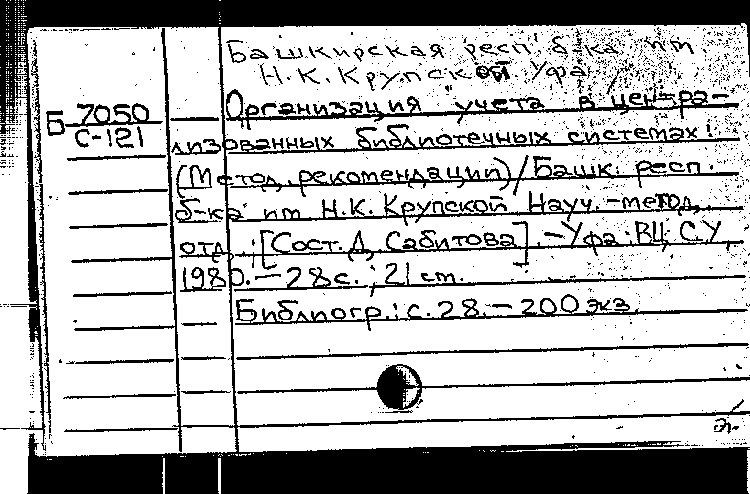 Башкирская респ. б-ка им
Н.К. Крупской Уфа
Б 7050
С-121
Организация учета в центра-
лизованных библиотечных системах:
(Метод. рекомендации)/Башк. респ.
б-ка им Н.К. Крупской Науч.-метод.
отд.; [Сост. Д. Сабитова]. -Уфа: ВЦ СУ,
1980. - 28 с.; 21 см.
Библиогр.: с. 28. - 200 экз.